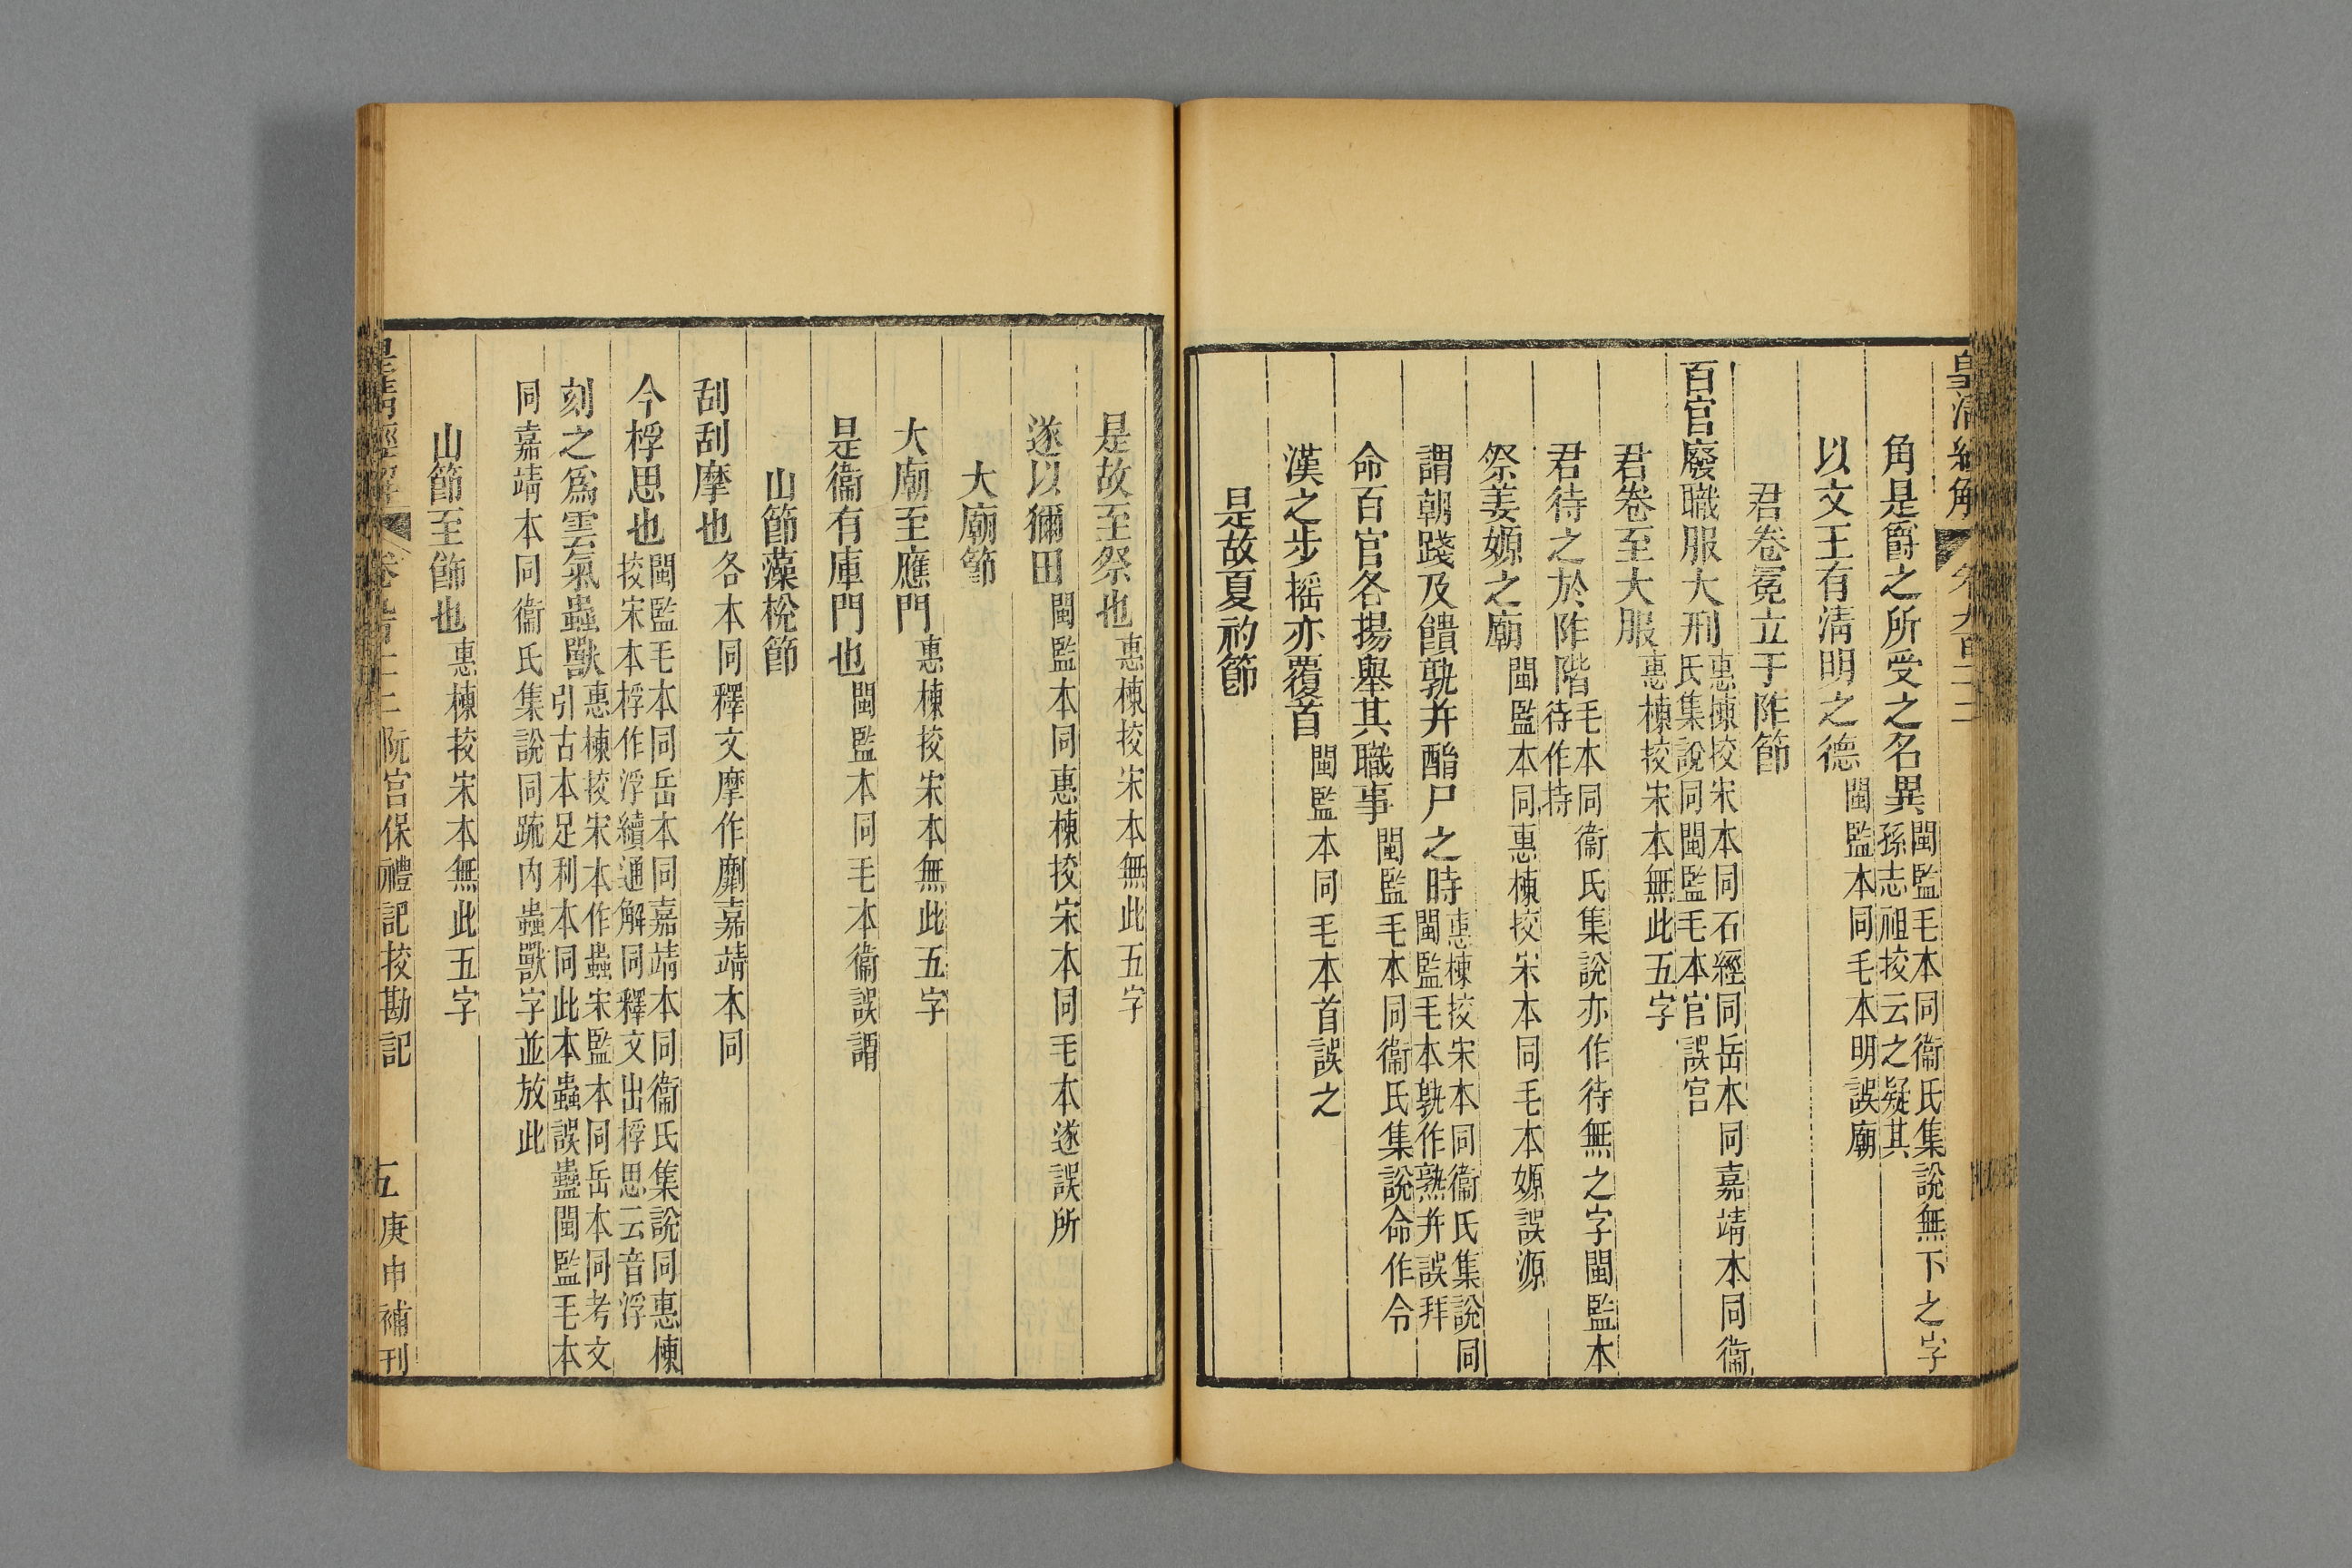 皇清經解
角是爵之所受之名異閩監毛本同衞氏集說無下之字
孫志祖挍云之疑其
以文王有清明之德閩監本同毛本明誤廟
君卷冕立于阼節
百官廢職服大刑惠棟挍宋本同石經同岳本同嘉靖本同衞
氏集說同閩監毛本官誤宫
君卷至大服惠棟挍宋本無此五字
君待之於阼階毛本同衞氏集說亦作待無之字閩監本
待作持
祭姜嫄之廟閩監本同惠棟挍宋本同毛本嫄誤源
謂朝踐及饋孰并酳尸之時惠棟挍宋本同衞氏集說同
閩監毛本孰作熟并誤拜
命百官各揚舉其職事閩監毛本同衞氏集說命作令
漢之步摇亦覆首閩監本同毛本首誤之
是故夏礿節
是故至祭也惠棟挍宋本無此五字
遂以獮田閩監本同惠棟挍宋本同毛本遂誤所
大廟節
大廟至應門惠棟挍宋本無此五字
是衞有庫門也閩監本同毛本衞誤謂
山節藻梲節
刮刮摩也各本同釋文摩作劘嘉靖本同
今桴思也閩監毛本同岳本同嘉靖本同衞氏集說同惠棟
挍宋本桴作浮續通解同釋文出桴思云音浮
刻之爲雲氣蟲獸惠棟挍宋本作蟲宋監本同岳本同考文
引古本足利本同此本蟲誤蠱閩監毛本
同嘉靖本同衞氏集說同疏内蟲獸字並放此
山節至飾也惠棟挍宋本無此五字
皇清經解 阮宫保禮記挍勘記 五 庚申補刊